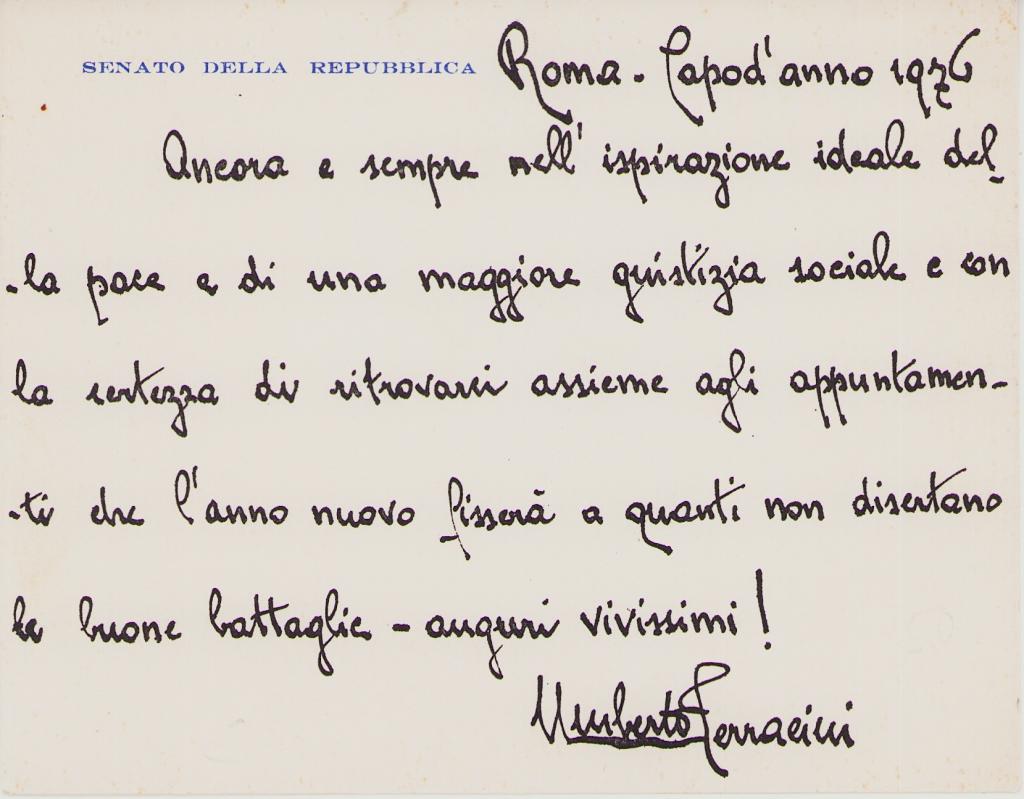 SENATO DELLA REPUBBLICA Roma - Capod'anno 1976
Ancora e sempre nell'ispirazione ideale del-
-la pace e di una maggiore giustizia sociale e con
la certezza di ritrovarci assieme agli appuntamen-
-ti che l'anno nuovo fisserà a quanti non disertano
le buone battaglie - auguri vivissimi!
Umberto Terracini